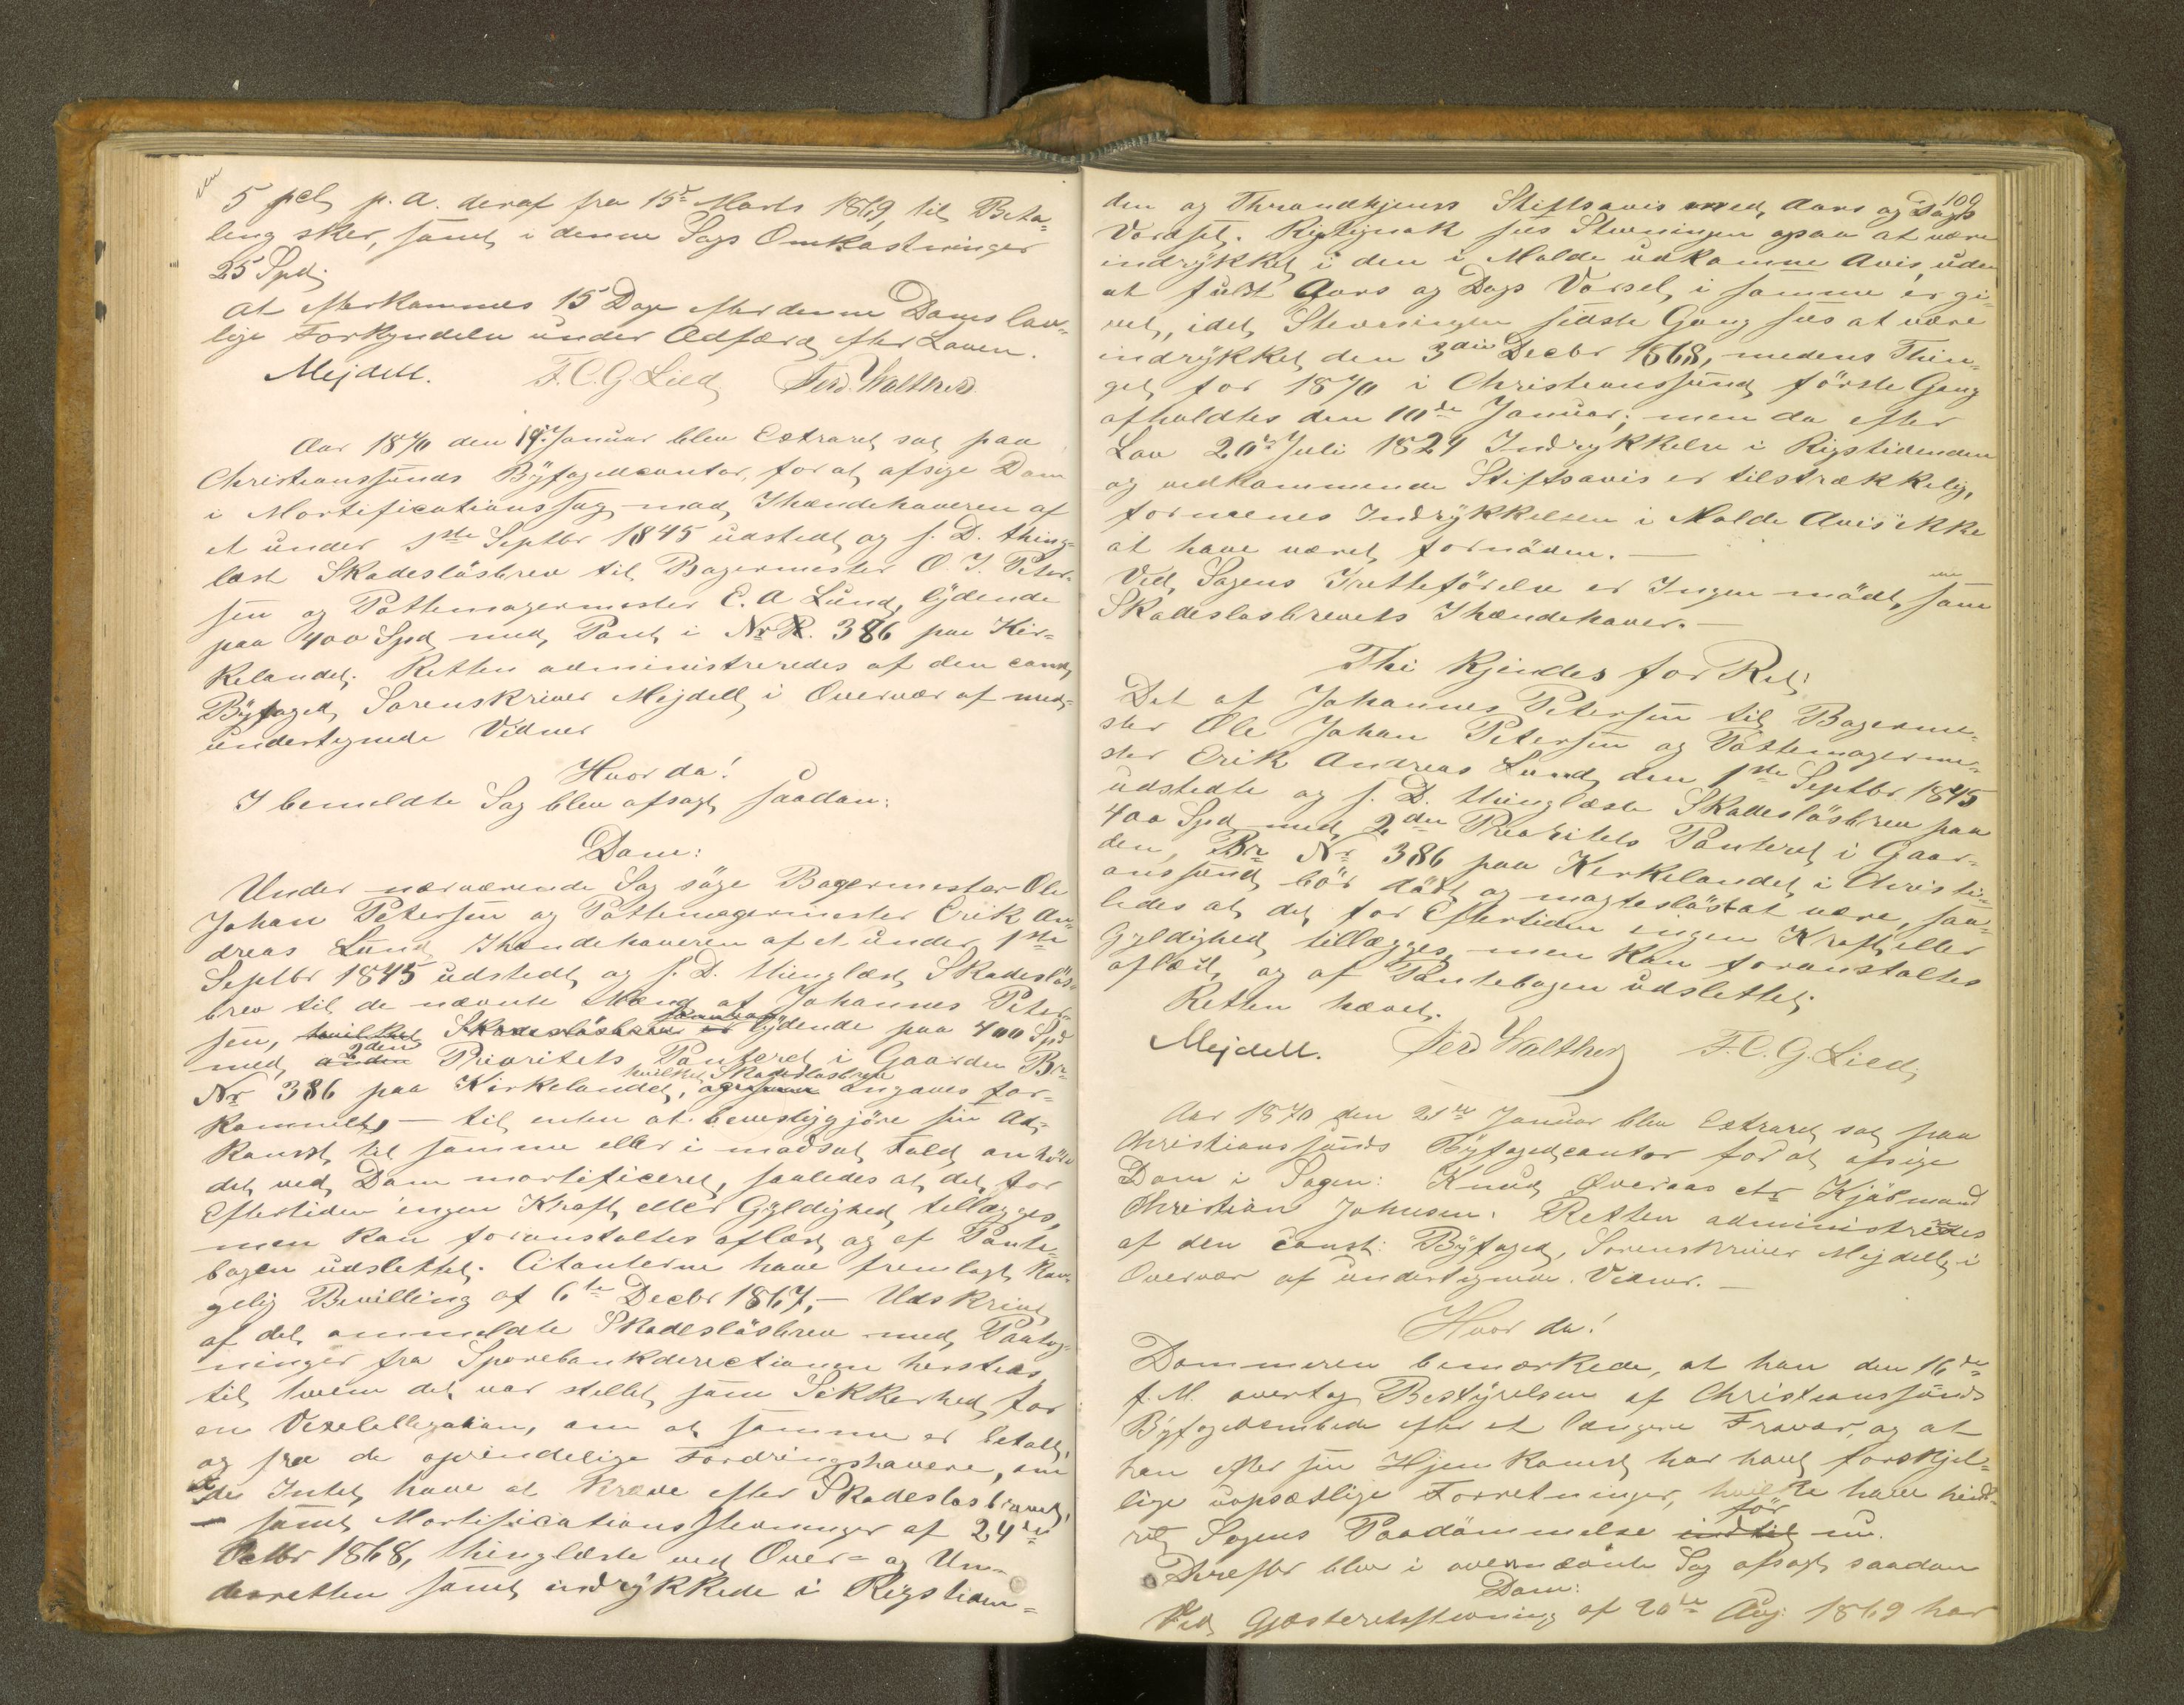 5 pct p. a. deraf fra 15de Marts 1869, til Beta-
ling sker, samt i denne Sags Omkostninger
25 Spd.
at efterkommes 15 Dage efter denne Doms lov-
lige Forkyndelse under Adfærd efter Loven.
Mejdell. F. C. G. Lied Ferd. Walther
Aar 1870 den 19. Januar blev Extraret sat paa
Christianssunds Byfogedcontor, for at afsige Dom
i Mortificationssag mod Ihændehaveren af
et under 1ste Septbr 1845 udstedt og s. D. thing-
læst Skadesløsbrev til Bagermester O. J. Peter-
sen og Pottemagermester E. A Lund, lydende
paa 400 Spd med Pant i Nr. 386 paa Kir-
kelandet. Retten administreredes af den const.
Byfoged, Sorenskriver Mejdell i Overvær af med-
undertegnede Vidner
Hvor da!
I bemeldte Sag blev afsagt saadan:
Dom:
Under nærværende Sag søge Bagermester Ole
Johan Petersen og Pottemagermester Erik An-
dreas Lund Ihændehaveren af et under 1ste
Septbr 1845 udstedt og s. D. thinglæst Skadesløs-
brev til de nævnte Mænd af Johannes Peter-
sen, hvilket Skadesløsbrev er lydende paa 400 Spd
med anden 2den Prioritets Panteret i Gaarden Br.
Nr 386 paa Kirkelandet, hvilket Skadesløsbrev angaves for-
kommet, – til enten at bevisliggjøre sin Ad-
komst til samme eller i modsat Fald anhøre
det ved Dom mortificeret, saaledes at det for
Eftertiden ingen Kraft eller Gyldighed tillægges,
men kan foranstaltes aflæst og af Pante-
bogen udslettet. Citanterne have fremlagt Kon-
gelig Bevilling af 6te Decbr 1867, – Udskrivt
af det ommeldte Skadesløsbrev med Paateg-
ninger fra Sparebankdirectionen hersteds,
til hvem det var stillet som Sikkerhed for
en Vexelobligation, om at samme er betalt,
og fra de oprindelige Fordringshavere, om
at de Intet have at kræve efter Skadesløsbrevet,
– samt Mortificationsstevninger af 24de
Octbr 1868, thinglæste ved Over- og Un-
derretten samt indrykkede i Rigstiden-
109
den og Throndhjems Stiftsavis med Aars og Dags
Varsel. Rigtignok sees Stevningen ogsaa at være
indrykket i den i Molde udkomne Avis, uden
at fuldt Aars og Dags Varsel i samme er gi-
vet, idet Stevningen sidste Gang sees at være
indrykket den 3die Decbr 1868, medens Thin-
get for 1870 i Christianssund første Gang
afholdtes den 10de Januar; men da efter
Lov 20de Juli 1824 Indrykkelse i Rigstidenden
og vedkommende Stiftsavis er tilstrækkelig,
formenes Indrykkelsen i Molde Avis ikke
at have været fornøden. –
Ved Sagens Iretteførelse er Ingen mødt, som
Skadesløsbrevets Ihændehaver. –
Thi kjendes for Ret:
Det af Johannes Petersen til Bagerme-
ster Ole Johan Petersen og Pottemagerme-
ster Erik Andreas Lund den 1ste Septbr. 1845
udstedte og s. D. thinglæste Skadesløsbrev paa
400 Spd med 2den Prioritets Panteret i Gaar-
den, Br. Nr. 386 paa Kirkelandet i Christi-
anssund bør dødt og magtesløst at være, saa-
ledes at det for Eftertiden ingen Kraft eller
Gyldighed tillægges, men kan foranstaltes
aflæst, og af Pantebogen udslettet.
Retten hævet.
Mejdell. Ferd Walther F. C. G. Lied
Aar 1870 den 21de Januar blev Extraret sat paa
Christianssunds Byfogedcontor for at afsige
Dom i Sagen: Knud Øveraas ctr Kjøbmand
Christian Johnsen. Retten administredes
af den const: Byfoged, Sorenskriver Mejdell, i
Overvær af undertegnede Vidner. –
Hvor da!
Dommeren bemærkede, at han den 16de
f. M. overtog Bestyrelsen af Christianssunds
Byfogedembede efter et længere Fravær, og at
han efter sin Hjemkomst har havt forskjel-
lige uopsættlige Forretninger, hvilke have hind-
ret Sagens Paadømmelse indtil før nu.
Derefter blev i ovennævnte Sag afsagt saadan
Dom:
Ved Gjæsteretsstevning af 20de Aug: 1869 har